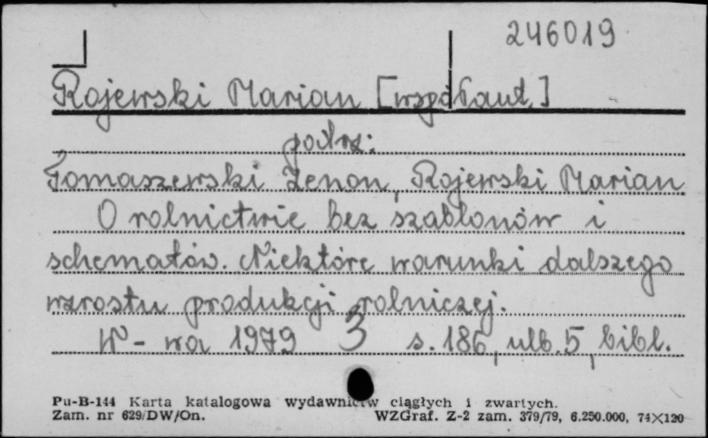 246019
Rojewski Marian [współaut.]
patrz:
Tomaszewski Zenon, Rojewski Marian
O rolnictwie bez szablonów i
schematów. Niektóre warunki dalszego
wzrostu produkcji rolniczej.
W-wa 1979 3 s. 186, ulb. 5, bibl.
Pu-B-144 Karta katalogowa wydawnictw ciągłych i zwartych.
Zam. nr 629/DW/On. WZGraf. Z-2 zam. 379/79, 6.250.000, 74×120